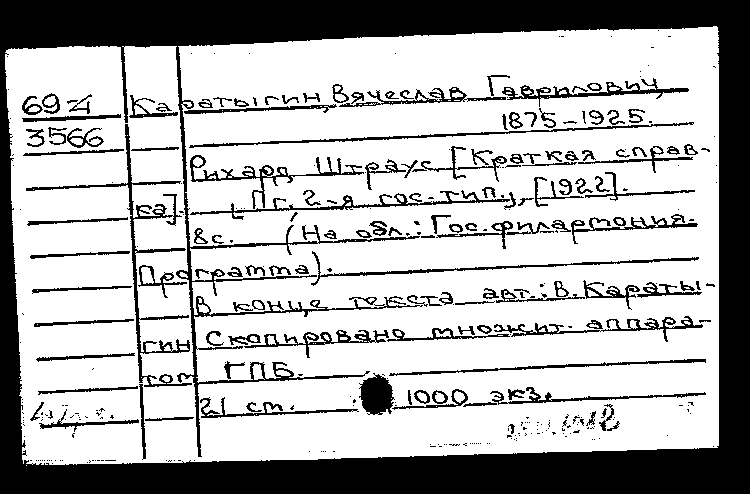 69-4 Каратыгин, Вячеслав Гаврилович,
3566 1875-1925.
Рихард Штраус [Краткая справ-
ка]. [Пг. 2-я гос. тип.], [1922].
8с. (На обл.: Гос. филармония.
Программа).
В конце текста авт.: В. Караты-
гин Скопировано множит. аппара-
том ГПБ.
21 ст. 1000 экз.